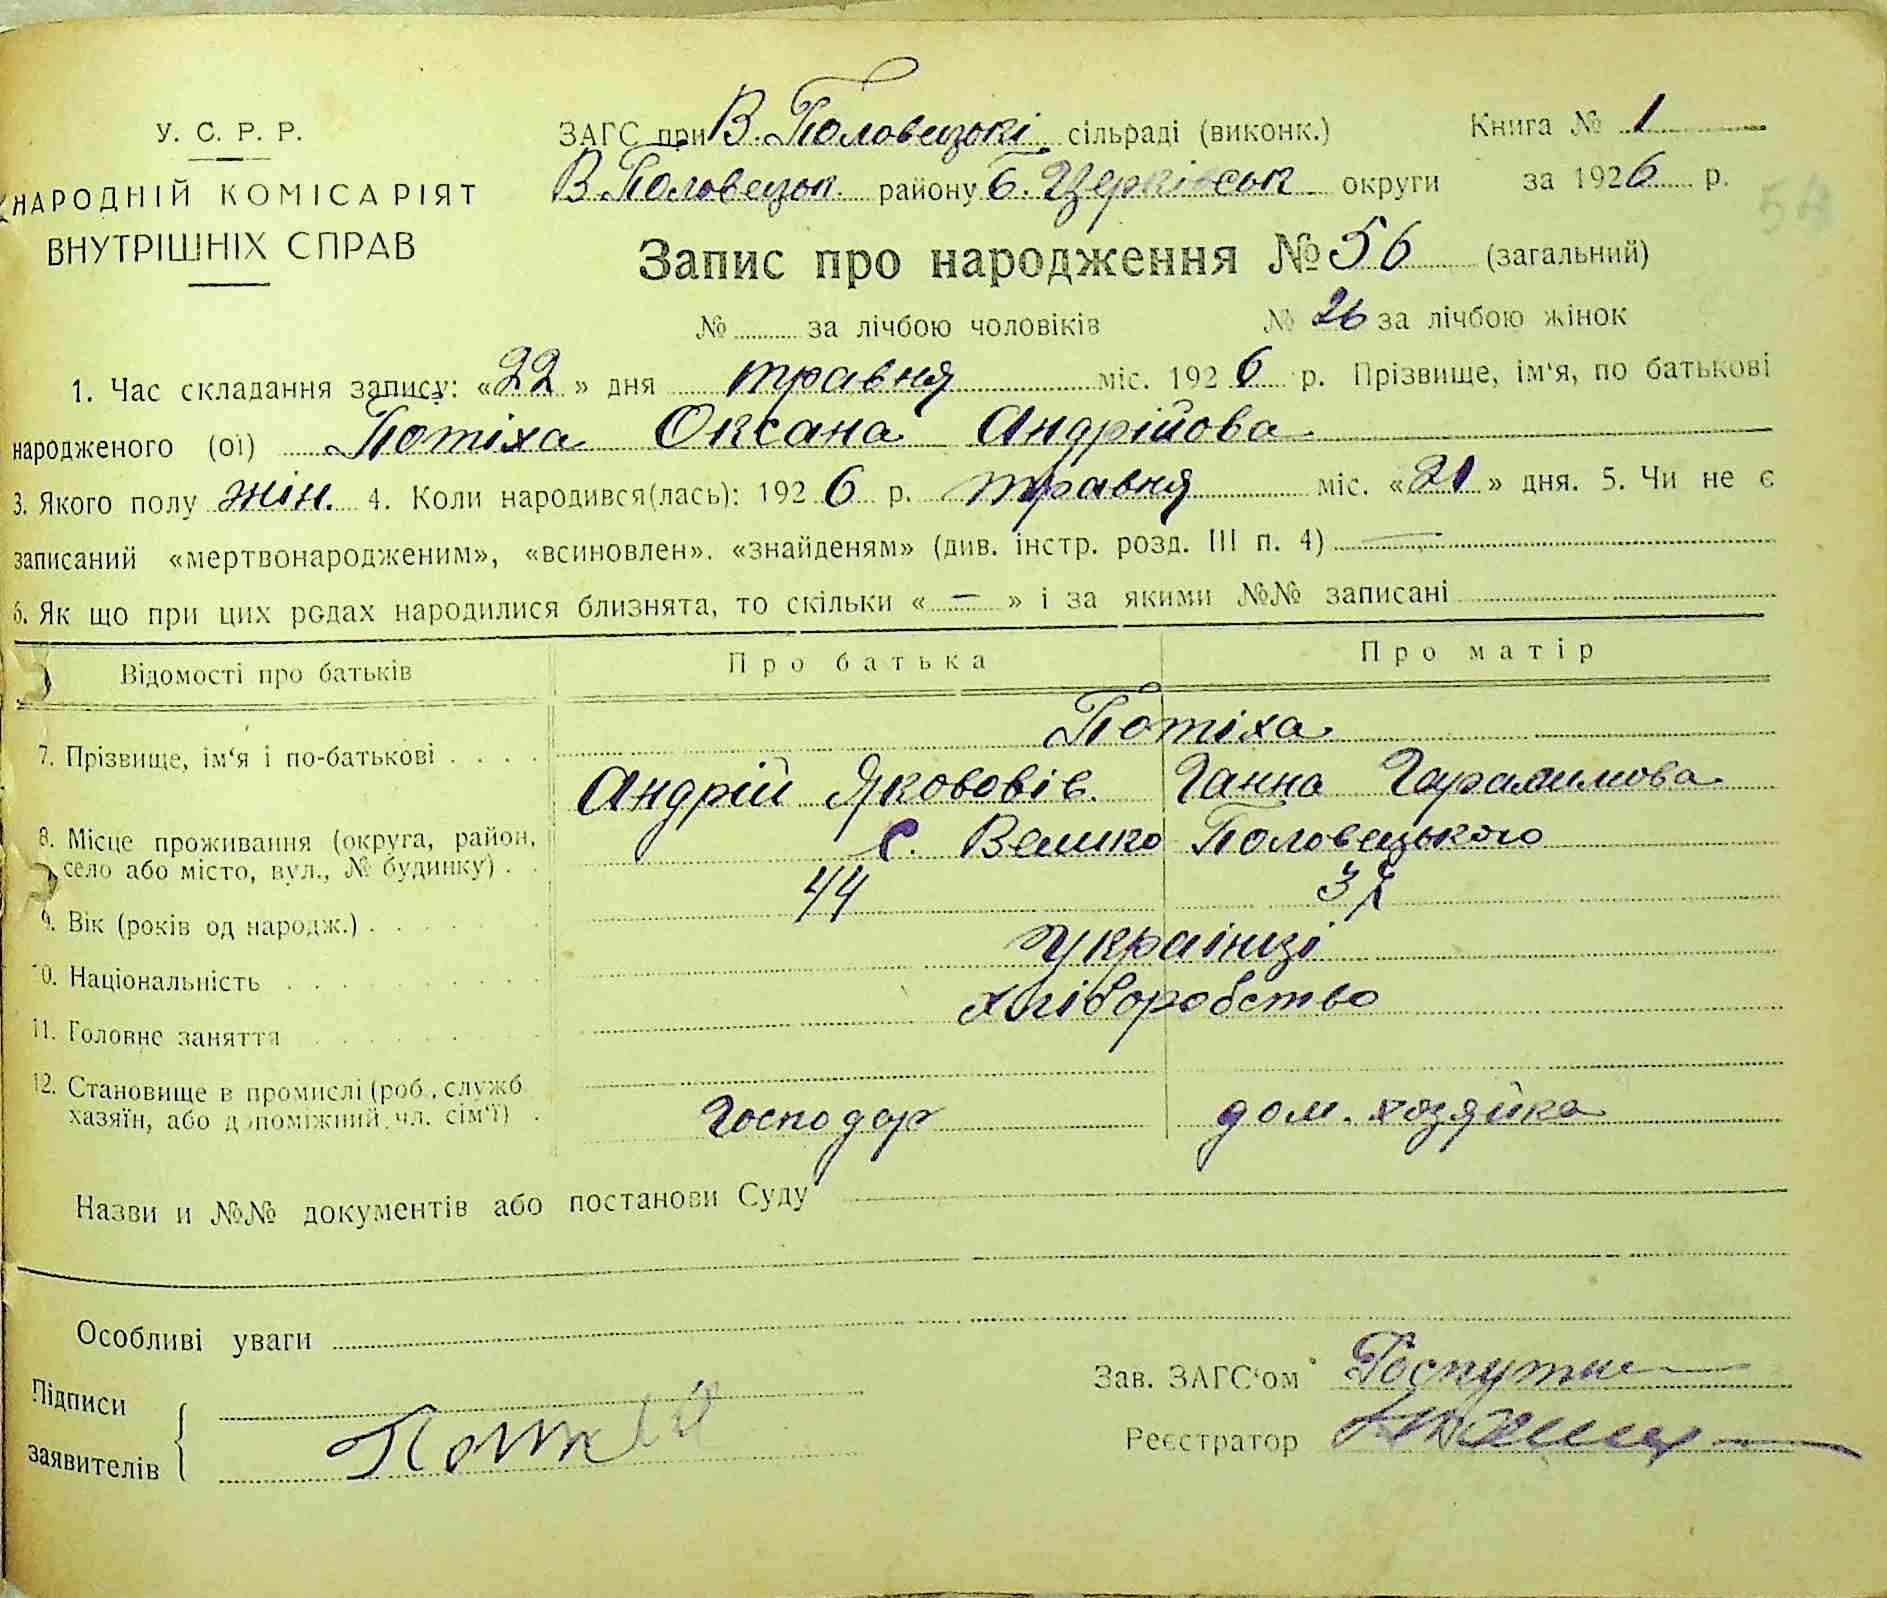 У. С. Р. Р.
НАРОДНІЙ КОМІСАРІЯТ
ВНУТРІШНІХ СПРАВ
ЗАГС при В. Половецькі сільраді (виконк.) Книга № 1
В. Половецьк. району Б. Церківськ округи за 1926 р.
54
Запис про народження № 56 (загальний)
№ за лічбою чоловіків № 26 за лічбою жінок
1. Час складання запису: «22» дня травня міс. 1926 р. Прізвище, ім‘я, по батькові
народженого (ої) Потіха Оксана Андрійова
3. Якого полу жін. 4. Коли народився(лась): 1926 р. травня міс. «21» дня. 5. Чи не є
записаний «мертвонародженим», «всиновлен». «знайденям» (див. інстр. розд. III п. 4) —
6. Як що при цих родах народилися близнята, то скільки « — » і за якими №№ записані
Відомості про батьків Про батька Про матір
7. Прізвище, ім‘я і по-батькові Потіха
Андрій Якововів. Ганна Гарасимова
8. Місце проживання (округа, район,
село або місто, вул., № будинку) с. Велико Половецького
9. Вік (років од народж.) 44 37
10. Національність Українці
11. Головне заняття хліборобство
12. Становище в промислі (роб., служб
хазяїн, або допоміжний чл. сім‘ї) Господар дом. хозяйка
Назви и №№ документів або постанови Суду
Особливі уваги
Підписи
заявителів
Зав. ЗАГС‘ом
Реєстратор